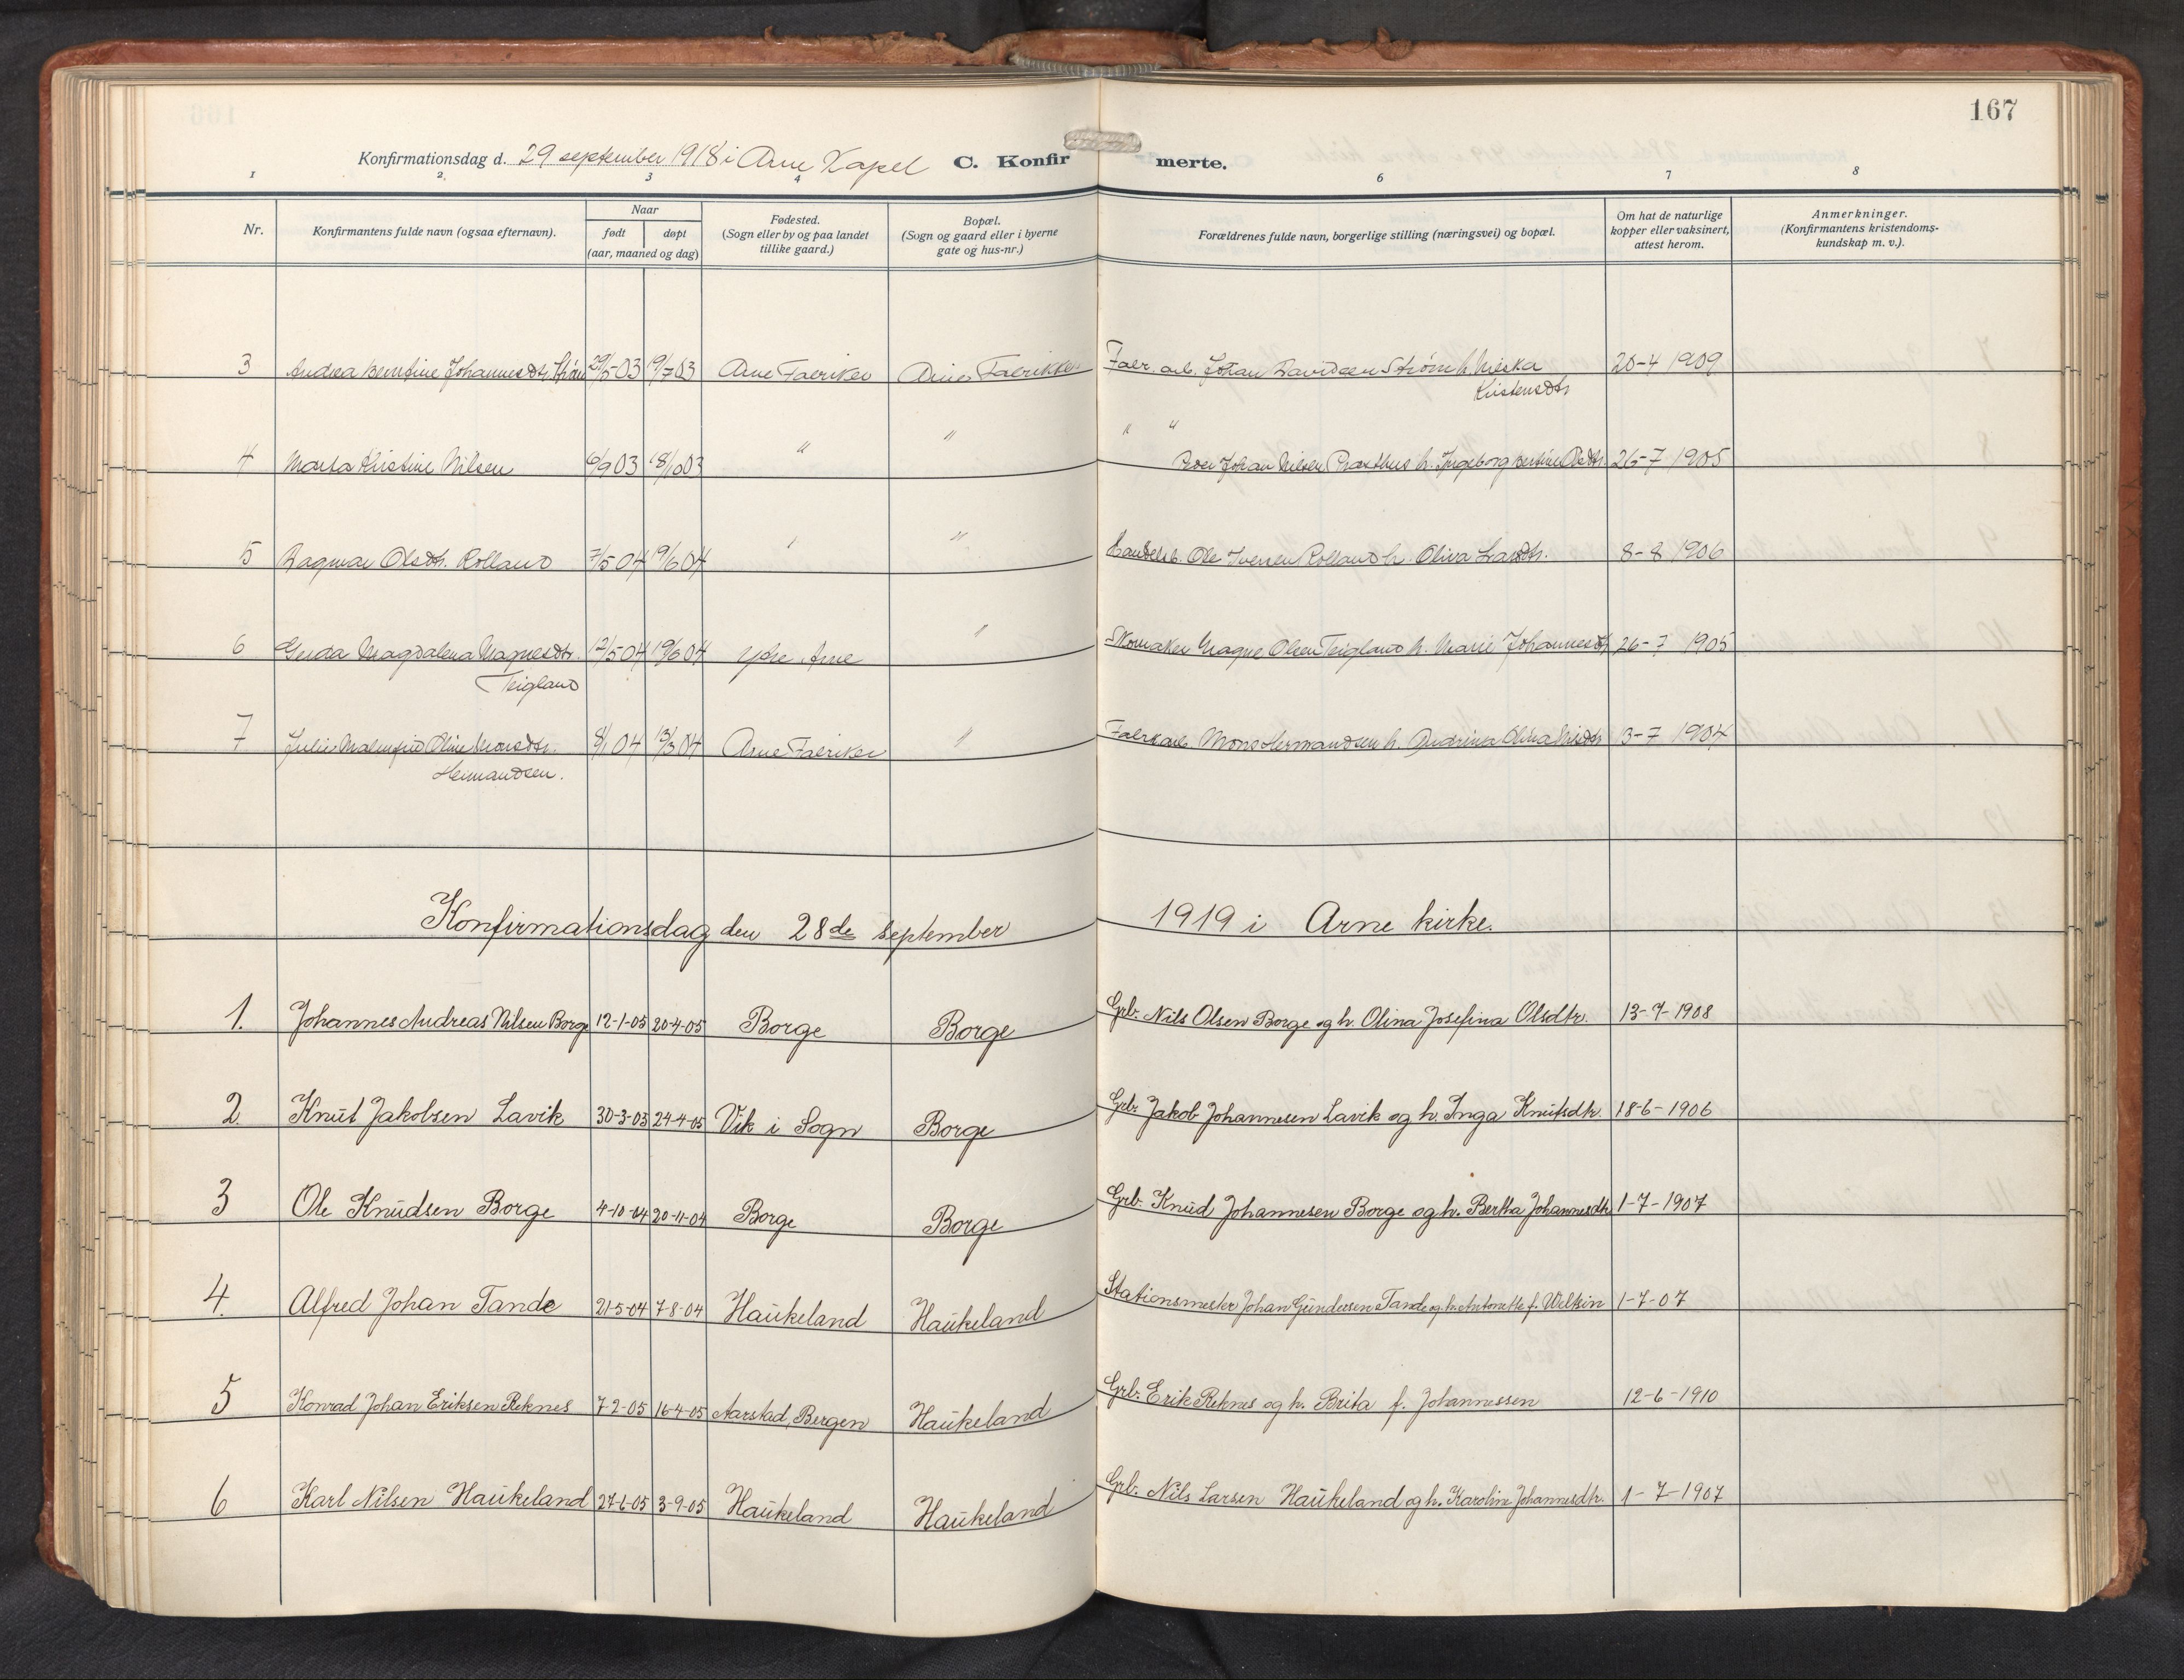 167
Konfirmationsdag d. 29 september 1918 i Arne Kapel C. Konfirmerte.
1 2 3 4 6 7 8
Nr. Konfirmantens fulde navn (ogsaa efternavn). Naar født døpt (aar, maaned og dag) Fødested. (Sogn eller by og paa landet tillike gaard.) Bopæl. (Sogn og gaard eller i byerne gate og hus-nr.) Forældrenes fulde navn, borgerlige stilling (næringsvei) og bopæl. Om hat de naturlige kopper eller vaksinert, attest herom. Anmerkninger. (Konfirmantens kristendomskundskap m. v.).
3 Andrea Berntine Johannesdtr. 29/5-03 19/7 03 Arne Fabriker Arne Fabrikker Fabr. arb. Johan Davidsen Strøm h. 20-4 1909
Kristensdtr
4 Marta Kristine Nilsen 6/9 03 18/10 03 " " " " Johan Nilsen h. Ingeborg 26-7 1905
5 Dagmar Olsdtr. Rolland 7/5 04 19/6 04 " " Ole Iversen Rolland h. Oliva Larsdtr. 8-8 1906
6 Magdalena Magnesdtr. 12/5 04 19/6 04 Ytre Arne " Skomaker Magne Olsen Teigland h. Marie Johannesdtr 26-7 1905
Teigland
7 Julie Malmfrid Oline Monsdtr. 8/1 04 13/3 04 Arne Fabriker " Fabrkarb. Mons Hermandsen h. 3-7 1904
Hermandsen.
Konfirmationsdag den 28de september 1919 i Arne kirke.
1. Johannes Andreas Nilsen Borge 12-1-05 20-4-05 Borge Borge Grb. Nils Olsen Borge og h. Olina Josefina Olsdtr. 13-7-1908
2. Knut Jakobsen Lavik 30-3-05 24-4-05 Vik i Sogn Borge Grb. Jakob Johannesen Lavik og h. Inga Knutsdtr. 18-6-1906
3 Ole Knudsen Borge 4-10-04 20-11-04 Borge Borge Grb. Knud Johannesen Borge og h. Bertha Johannesdtr 1-7-1907
4. Alfred Johan Tande 21-5-04 7-8-04 Haukeland Haukeland Stationsmester Johan Gundersen Tande og h. Antonette f. 1-7-07
5 Konrad Johan Eriksen Reknes 7-2-05 16-4-05 Aarstad, Bergen Haukeland Grb. Erik Reknes og h. Brita f. Johannessen 12-6-1910
6 Karl Nilsen Haukeland 27-6-05 3-9-05 Haukeland Haukeland Grb. Nils Larsen Haukeland og h. Karoline Johannesdtr. 1-7-1907